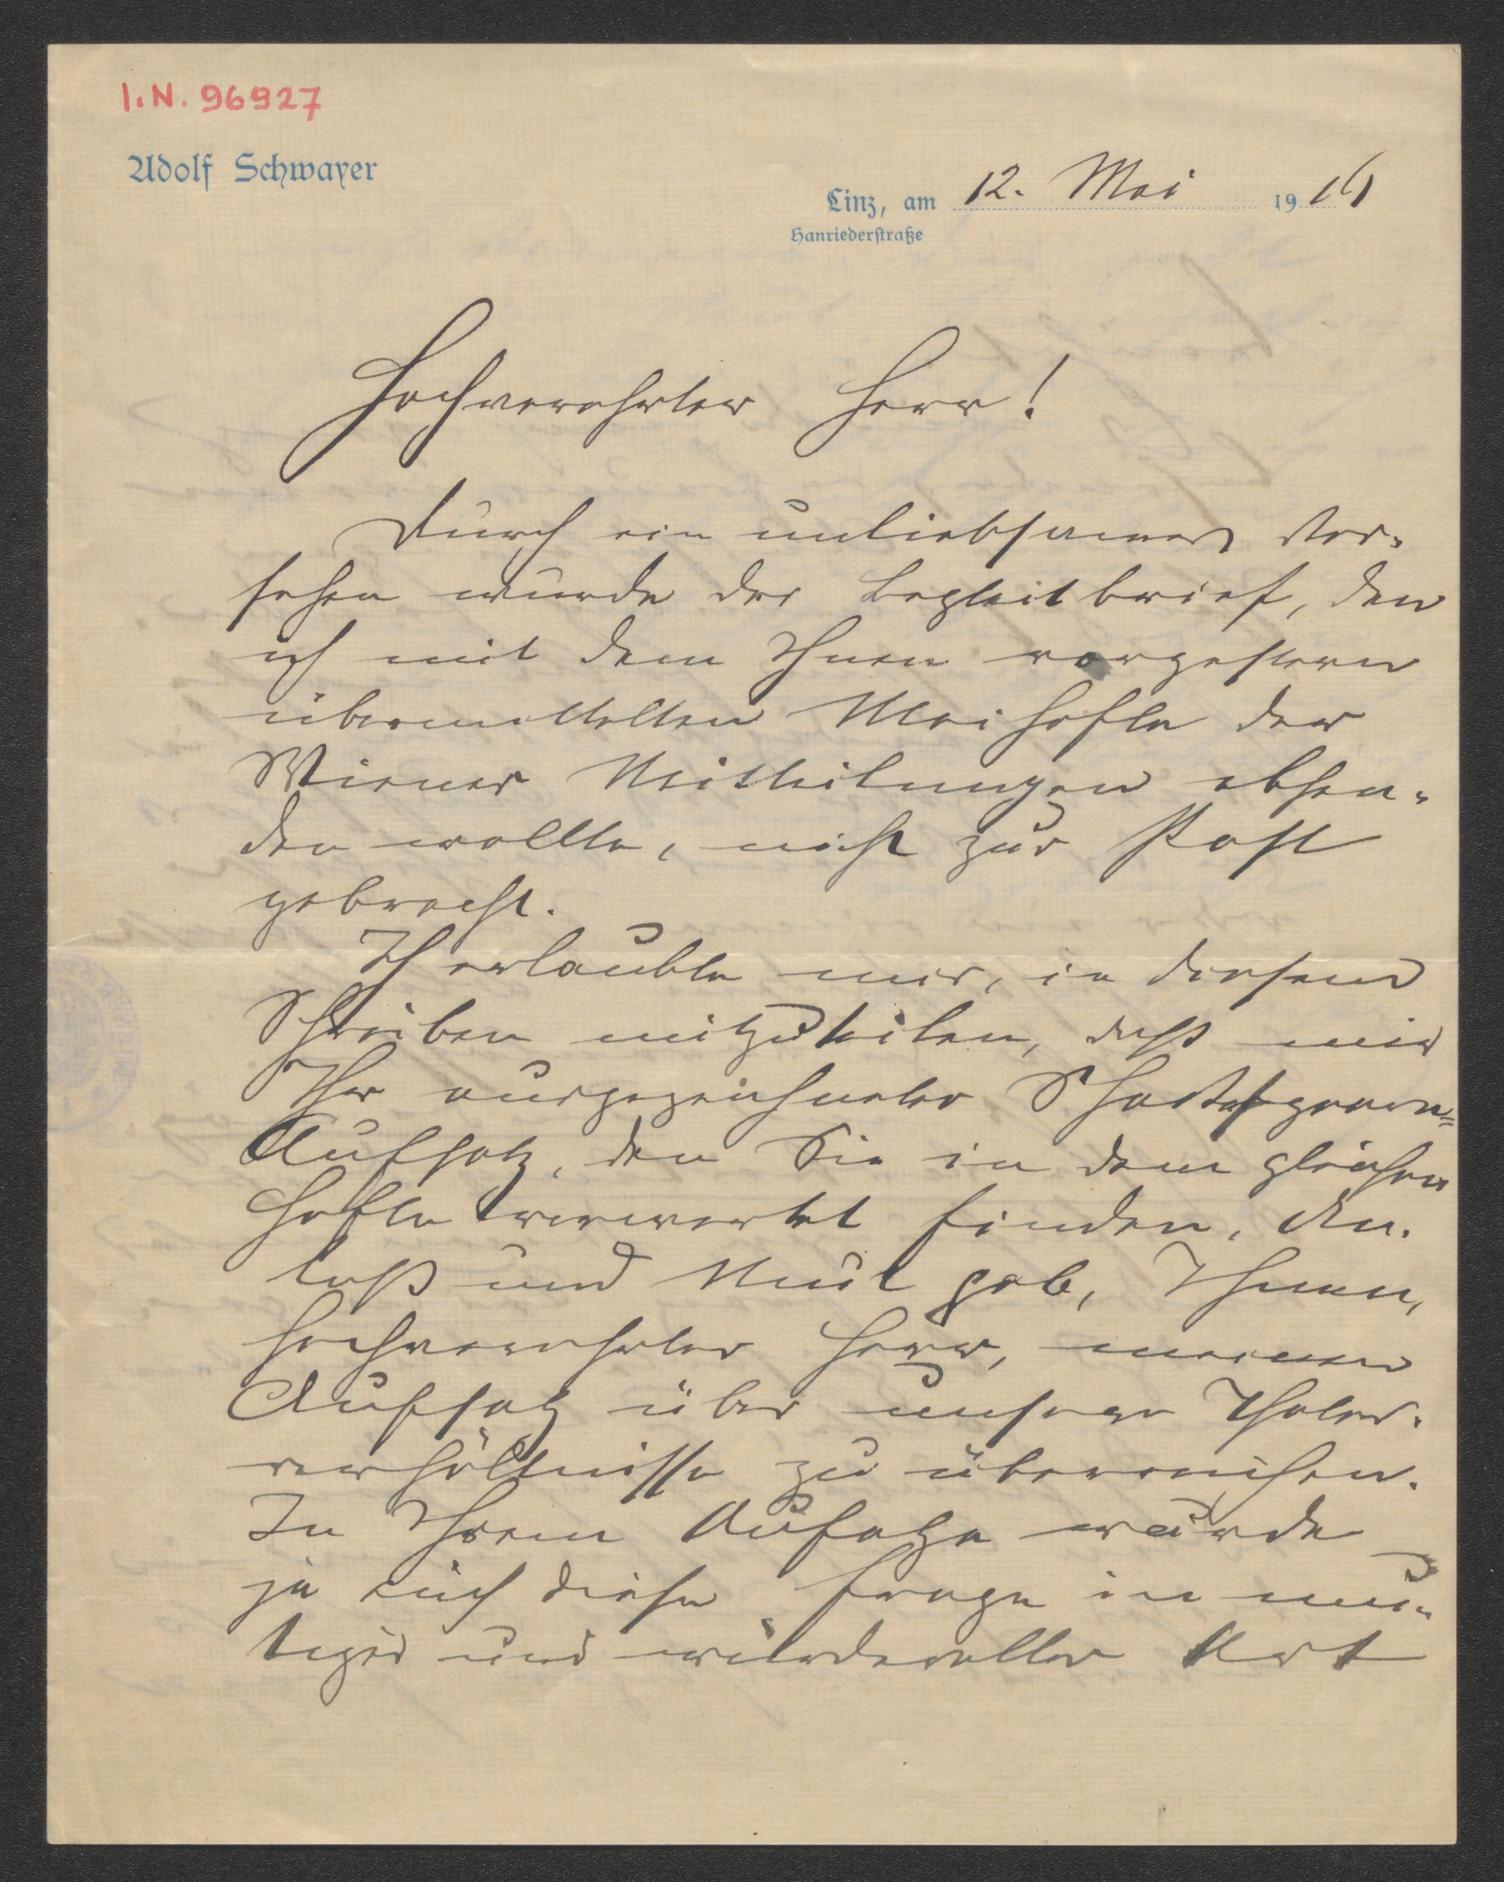 I.N. 96927
Adolf Schwayer
Linz, am 12. Mai 1916
Hanriederstraße
Hochverehrter Herr!
Durch ein unliebsames Ver-
sehen wurde der Begleitbrief, den
ich mit dem Ihnen vorgestern
übermittelten Maihefte der
Wiener Mitteilungen absen-
den wollte, nicht zur Post
gebracht.
Ich erlaubte mir, in diesem
Schreiben mitzuteilen, daß mir
Ihr ausgezeichneter
Aufsatz, den Sie in dem gleichen
Hefte verwertet finden, An-
laß und Mut gab, Ihnen,
hochverehrter Herr, meinen
Aufsatz über unsere Theater-
verhältnisse zu überreichen.
In Ihrem Aufsatze wurde
ja auch diese Frage in mu-
tiger und würdevoller Art